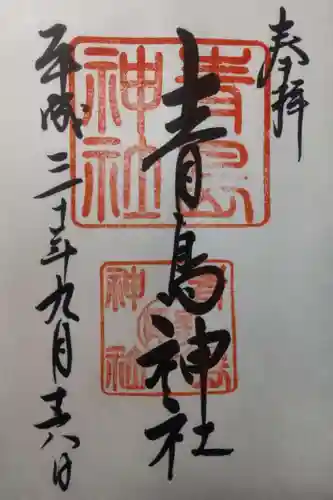 奉拝
青島神社
平成三十年九月十八日
青島神社
青島神社